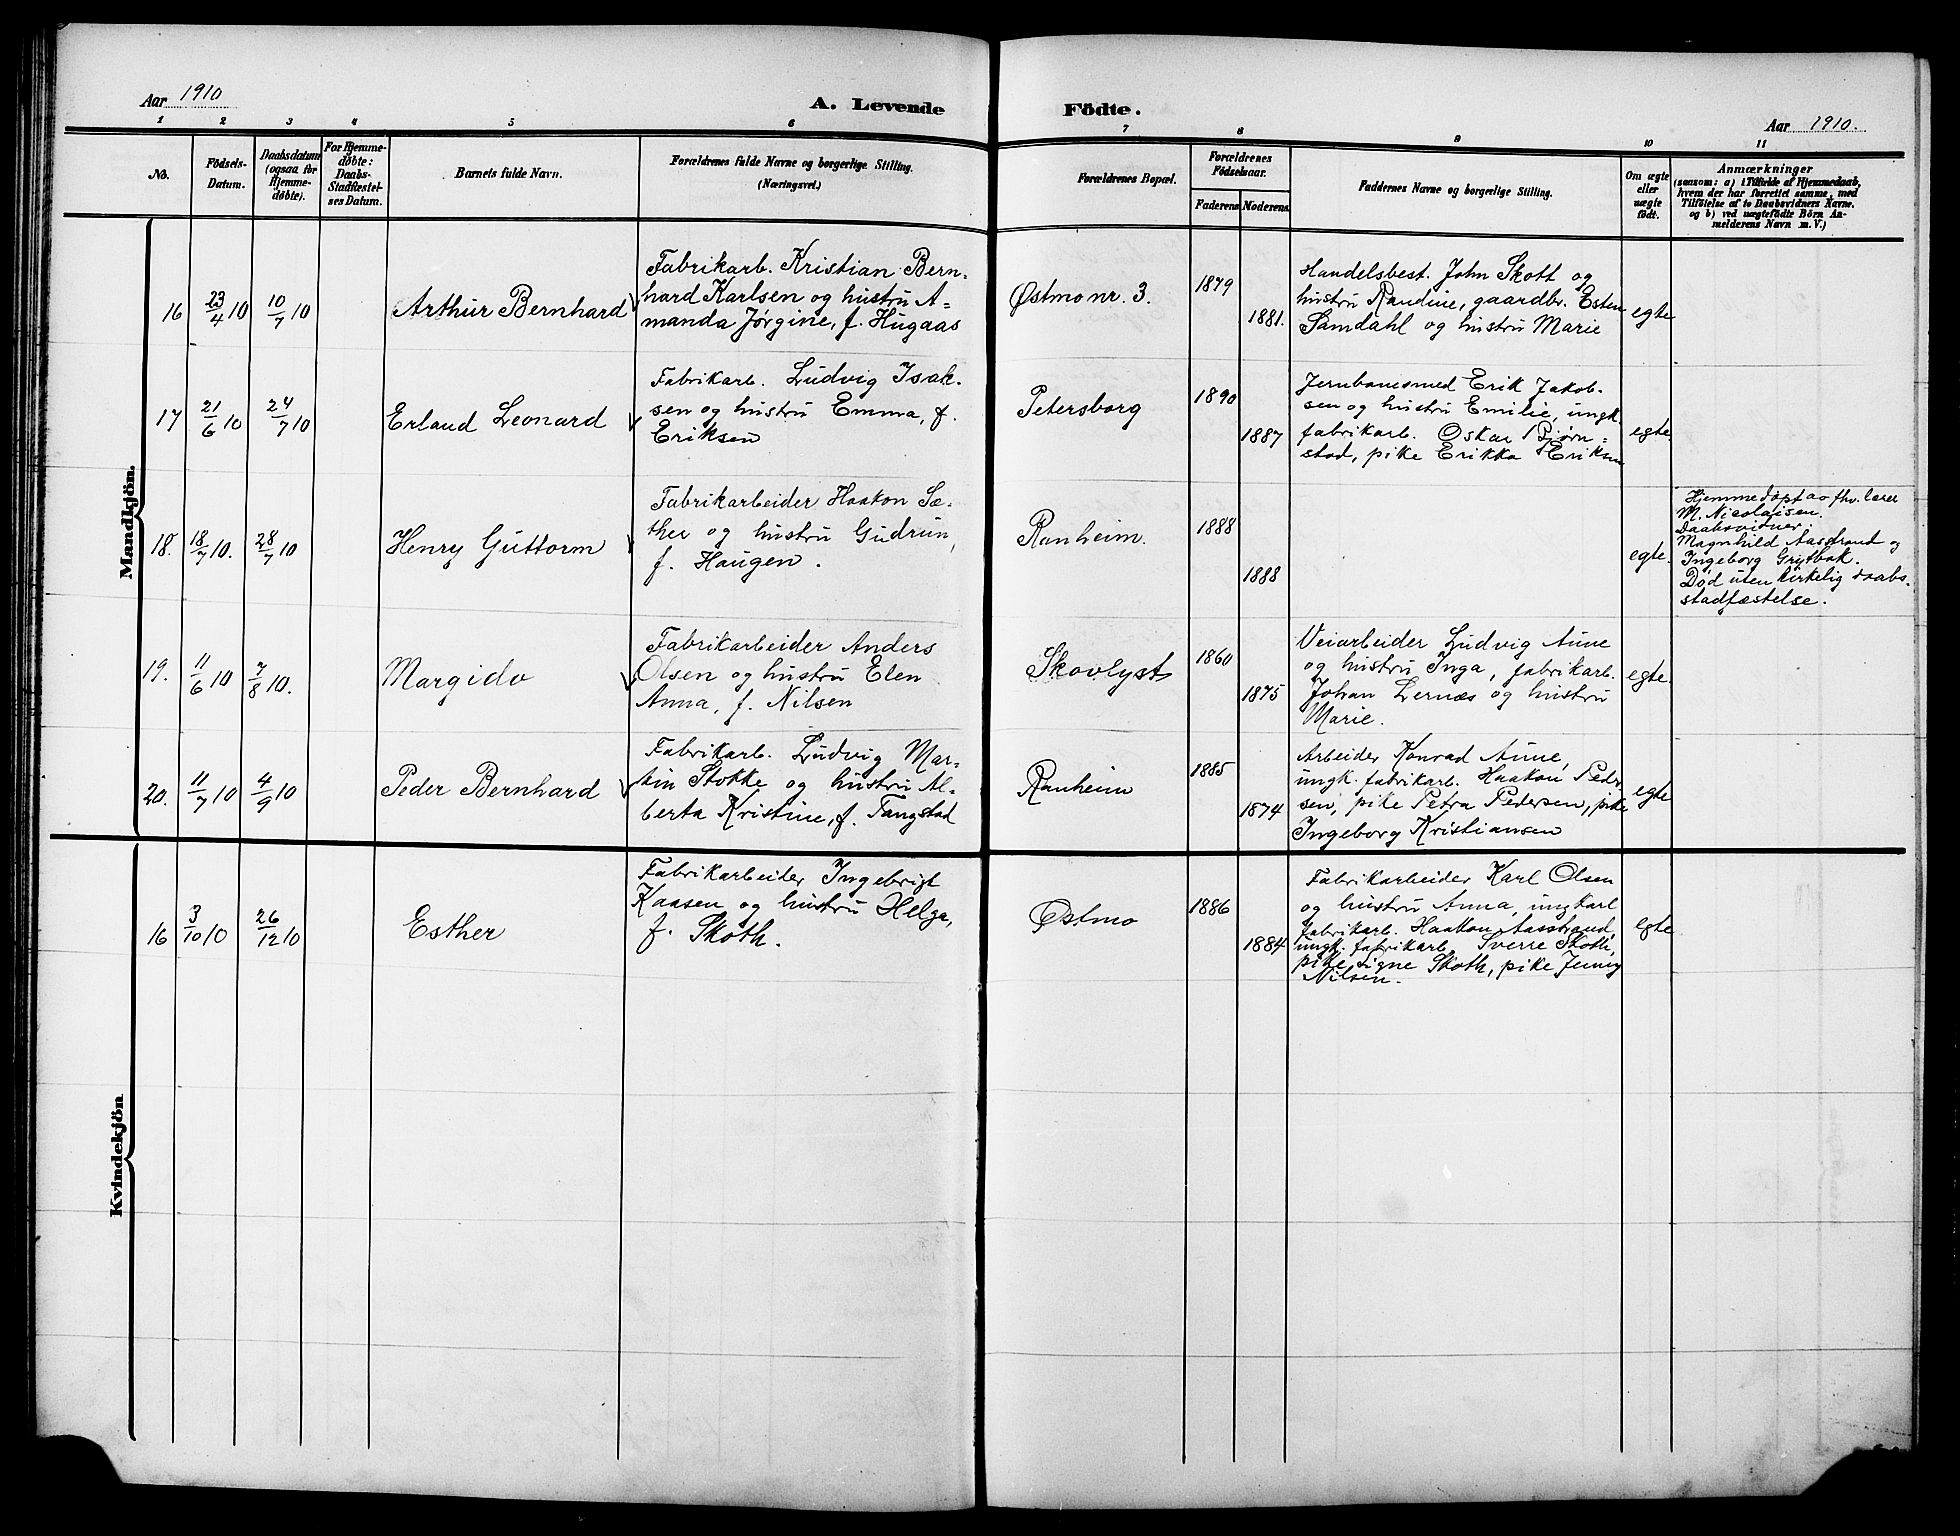 Aar 1910
A. Levende
Födte.
Aar 1910.
1 2 3 4 5 6 7 8 9 10 11
No.
Födsels-
Datum.
Daabsdatum
(ogsaa for
Hjemme-
döbte).
For Hjemme-
döbte:
Daabs-
Stadfæstel-
ses Datum.
Barnets fulde Navn.
Forældrenes fulde Navne og borgerlige Stilling.
(Næringsvei.)
Forældrenes Bopæl.
Forældrenes
Födselsaar.
Faderens
Moderens
Faddernes Navne og borgerlige Stilling.
Om ægte
eller
uægte
födt.
Anmærkninger
(saasom: a) i Tilfælde af Hjemmedaab,
hvem der har forrettet samme, med
Tilföielse af to Daabsvidners Navne.
og b) ved uægtefödte Börn An-
melderens Navn m. V.)
Mandkjön.
16 23/4 10 10/7 10 Arthur Bernhard
Fabrikarb. Kristian Bern-
hard Karlsen og hustru A-
manda Jørgine, f. Hugaas
Østmo nr. 3.
1879
1881.
Handelsbest. John Skott og
hustru Randine, gaardbr. Esten
Samdahl og hustru Marie
egte
17 21/6 10 24/7 10 Erland Leonard
Fabrikarb. Ludvig Isak-
sen og hustru Emma, f.
Eriksen
Petersborg
1890
1887
Jernbanesmed Erik Jakob-
sen og hustru Emilie, ungk.
fabrikarb. Oskar Bjørn-
stad, pike Erikka Eriksen
egte.
18. 18/7 10. 28/7 10 Henry Guttorm
Fabrikarbeider Haakon Sæ-
ther og hustru Gudrun,
f. Haugen.
Ranheim.
1888
1888
egte.
Hjemmedøpt av fhv. lærer
M. Nicolaisen.
Daabsvidner:
Magnhild Aasstrand og
Ingeborg Grytbak.
Død uten kirkelig daabs-
stadfæstelse.
19. 11/6 10 7/8 10. Margido
Fabrikarbeider Anders
Olsen og hustru Elen
Anna, f. Nilsen
Skovlyst
1860
1875
Veiarbeider Ludvig Aune
og hustru Inga, fabrikarb.
Johan Lernæs og hustru
Marie.
egte.
20. 11/7 10 4/9 10 Peder Bernhard
Fabrikarb. Ludvig Mar-
tin Stokke og hustru Al-
berta Kristine, f. Tangstad
Ranheim
1885
1874
Arbeider Konrad Aune,
ungk. fabrikarb. Haakon Peder-
sen, pike Petra Pedersen, pike
Ingeborg Kristiansen
egte
Kvindekjön
16 3/10 10 26/12 10 Esther
Fabrikarbeider Ingebrigt
Kaasen og hustru Helga,
f. Skoth.
Østmo
1886
1884
Fabrikarbeider Karl Olsen
og hustru Anna, ungkarl
fabrikarb. Haakon Aasstrand,
ungk. fabrikarb. Sverre Skoth,
pike Signe Skoth, pike Jenny
Nilsen.
egte